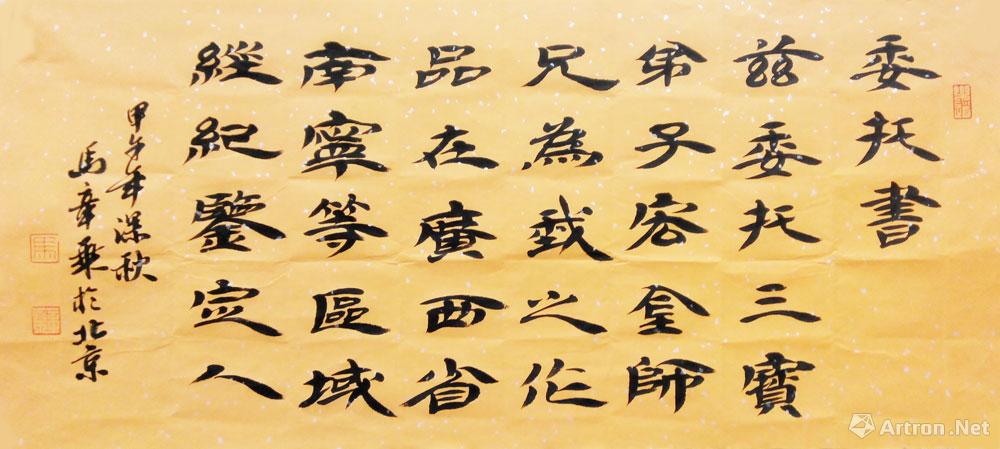 委托書
兹委托三寶
弟子容金師
兄為我之作
品在廣西省
南寧等區域
經紀鑒定人
甲午年深秋
馬章乘於北京
Artron.Net